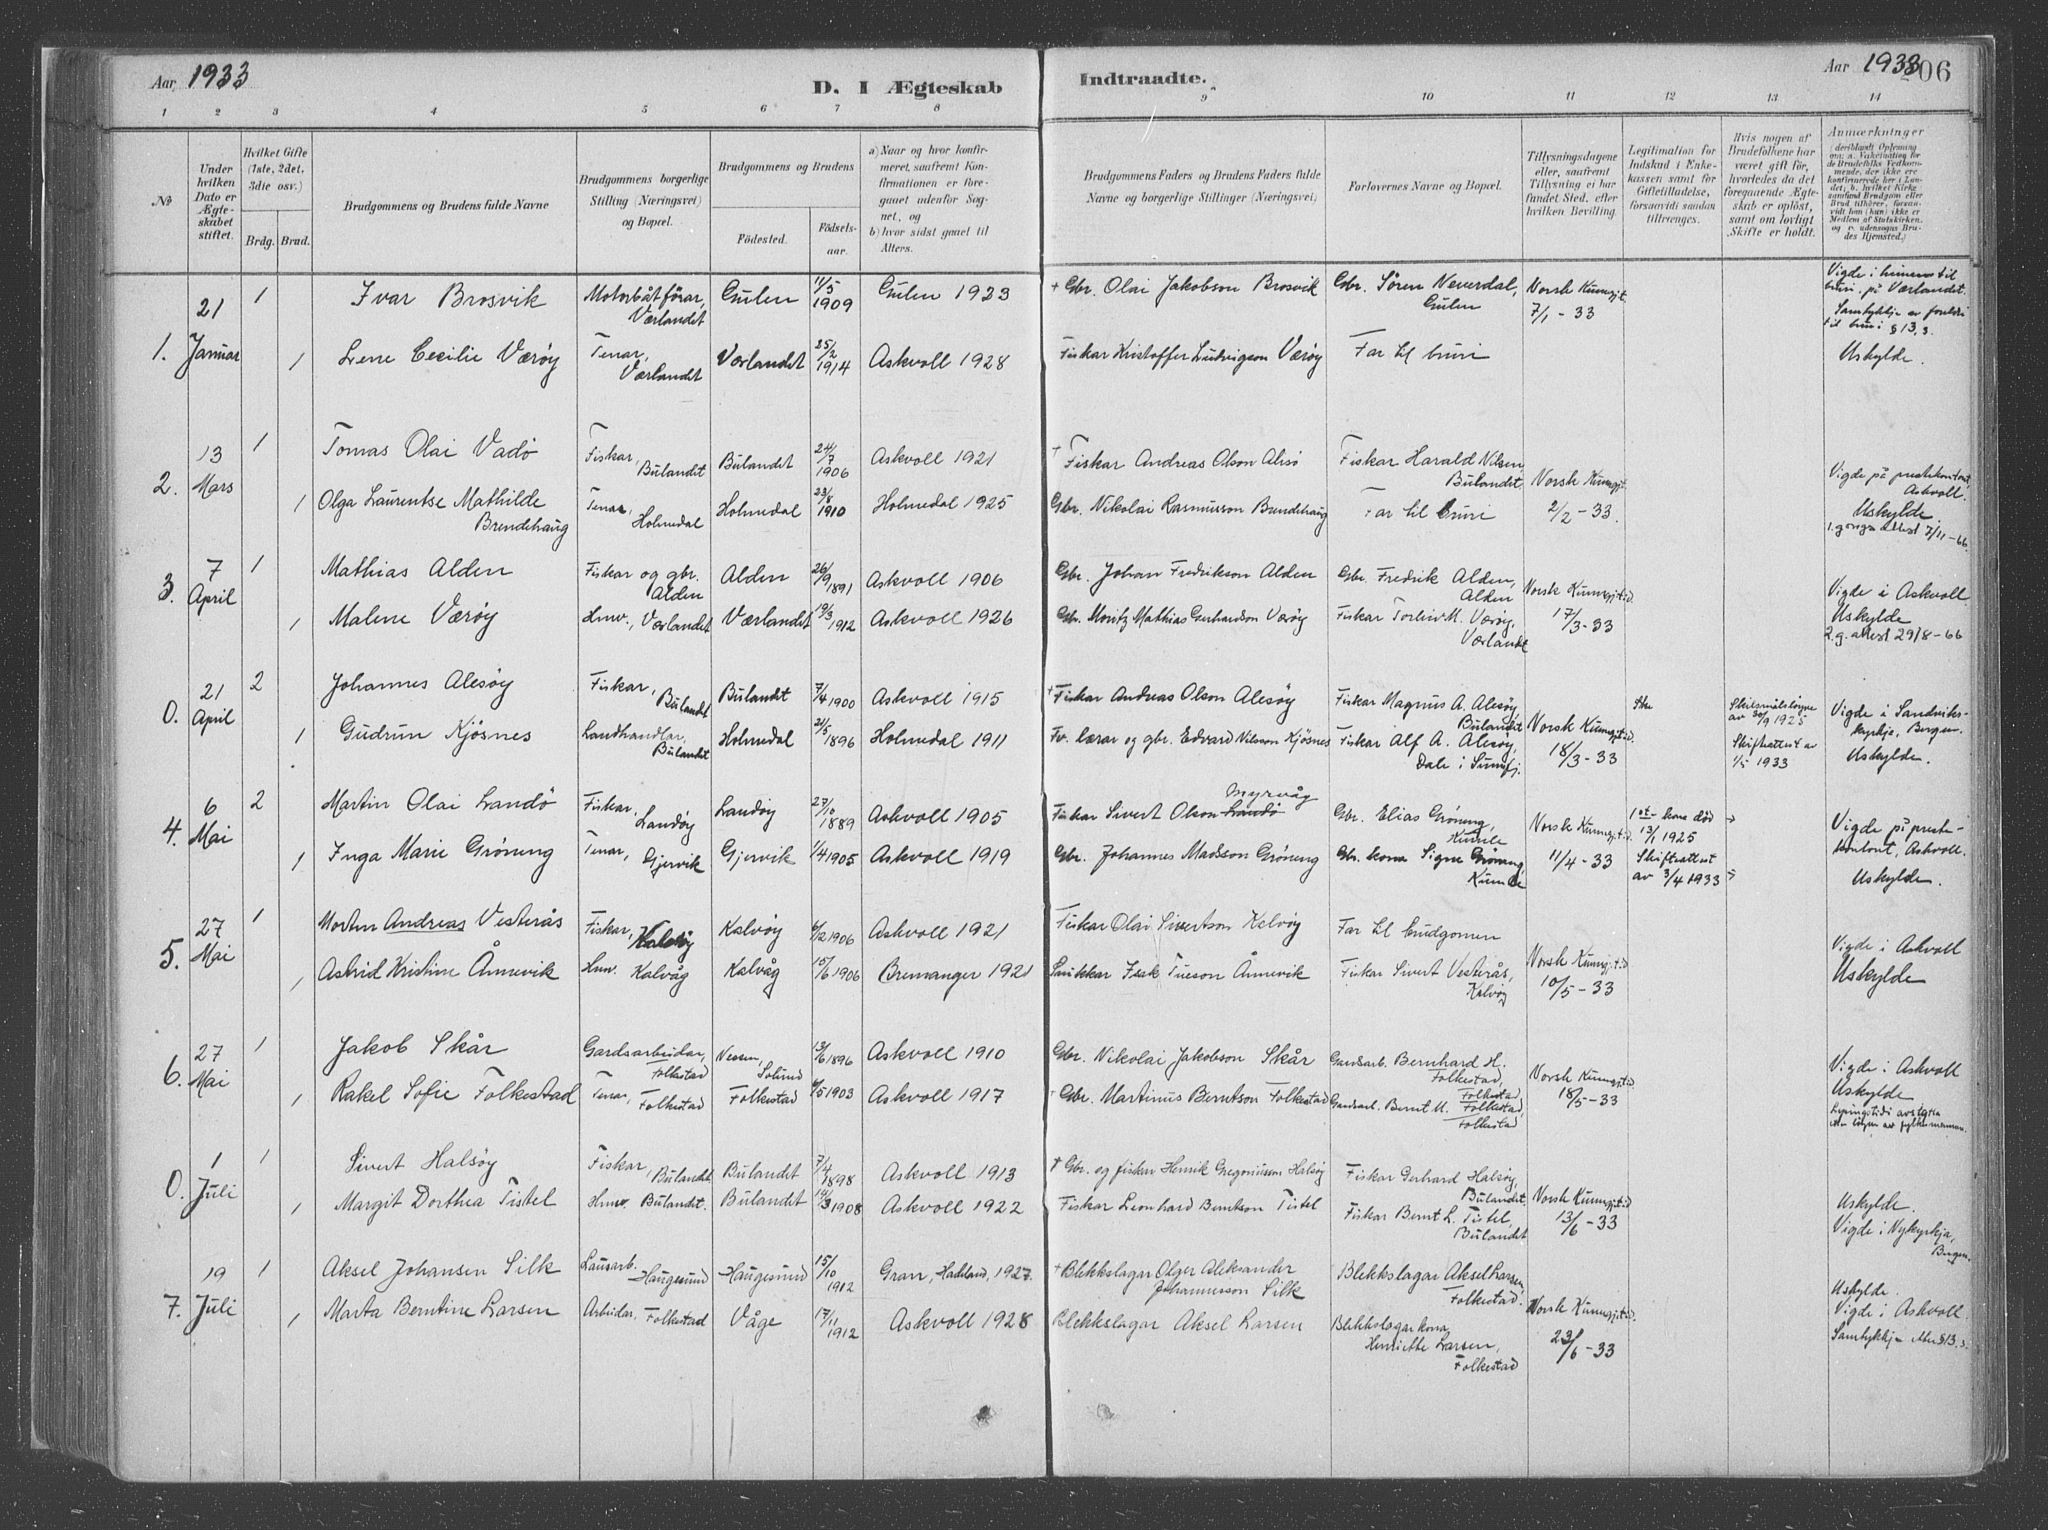 Aar 1933
D. 1 Ægteskab
Indtraadte.
Aar 1933
206
1 2 3 4 5 6 7 8 9 10 11 12 13 14
No
Under hvilken Dato er Ægteskabet stiftet.
Hvilket Gifte (1ste, 2det, 3die osv.)
Brdg. Brud.
Brudgommens og Brudens fulde Navne
Brudgommens borgerlige Stilling (Næringsvei) og Bopæl.
Brudgommens og Brudens
Födested.
Födselsaar.
a) Naar og hvor konfirmeret, saafremt Konfirmationen er foregaaet udenfor Sognet, og
b) hvor sidst gaaet til Alters.
Brudgommens Faders og Brudens Faders fulde Navne og borgerlige Stillinger (Næringsvei)
Forlovernes Navne og Bopæl.
Tillysningsdagene eller, saafremt Tillysning ei har fundet Sted, efter hvilken Bevilling.
Legitimation for Indskud i Enkekassen samt for Giftetilladelse, forsaavidt saadan tiltrænges.
Hvis nogen af Brudefolkene har været gift för, hvorledes da det foregaaende Ægteskab er oplöst, samt om lovligt Skifte er holdt.
Anmærkninger
1. 21 Januar
1 Ivar Brosvik Motorbåtförar, Værlandet Gulen 11/5 1909 Gulen 1923 + Gbr. Olai Jakobson Brosvik Gbr. Sören Neverdal, Gulen Norsk Kunngjt. 7/1-33 Vigde i heimen til bruri, på Værlandet. Samtykkje av foreldri til bruri §13,3.
1 Lene Cecilie Værøy Tenar, Værlandet Værlandet 25/2 1914 Askvoll 1928 Fiskar Kristoffer Ludvigson Værøy Far til bruri Uskylde.
2. 13 Mars
1 Tomas Olai Vadö Fiskar, Bulandet Bulandet 24/7 1906 Askvoll 1921 + Fiskar Andreas Olson Alisö Fiskar Harald Nilsen Bulandet Norsk Kunngjt. 2/2-33. Vigde på prestekontoret, Askvoll.
1 Olga Laurentse Mathilde Brendehaug Tenar, Holmedal Holmedal 23/8 1910 Holmedal 1925 Gbr. Nikolai Rasmusson Brendehaug Far til bruri Uskylde 1. gongs attest 7/11-66.
3. 7 April
1 Mathias Alden Fiskar og gbr. Alden Alden 26/9 1891 Askvoll 1906 Gbr. Johan Fredrikson Alden Gbr. Fredrik Alden, Alden Norsk Kunngjt.d. 17/3-33 Vigde i Askvoll.
1 Malene Værøy Hmv., Værlandet Værlandet 19/3 1912 Askvoll 1926 Gbr. Moritz Mathias Gerhardson Værøy Fiskar Torleiv M. Værøy, Værlandet Uskylde 2.g. attest 29/8-66
0. 21 April
2 Johannes Alesøy Fiskar, Bulandet Bulandet 7/4 1900 Askvoll 1915 + Fiskar Andreas Olson Alesøy Fiskar Magnus A. Alesøy, Bulandet Norsk Kunngjt.d. 18/3-33 Skilsmålsløyve av 30/9 1925 Vigde i Sandvikskyrkje, Bergen.
1 Gudrun Kjøsnes Landhandlar, Bulandet Holmedal 21/5 1896 Holmedal 1911 Fv. lærar og gbr. Edvard Nilsson Kjøsnes Fiskar Alf A. Alesøy, Dale i Sunnfj. Skifteattest av 1/5 1933 Uskylde.
4. 6 Mai
2 Martin Olai Landö Fiskar, Landøy Landøy 27/10 1889 Askvoll 1905 Fiskar Sivert Olson Landö Myrvåg Gbr. Elias Grøning, Kumle Norsk Kunngjt.d. 11/4-33 1ste kone död 13/1 1925 Vigde på prestekontoret, Askvoll.
1 Inga Marie Grøning Tenar, Gjervik Gjervik 1/4 1905 Askvoll 1919 Gbr. Johannes Madsson Grøning Gbr. kona Signe Grøning, Kumle Skifteattest av 3/4 1933 Uskylde.
5. 27 Mai
1 Morten Andreas Vesterås Fiskar, Kalvøy Kalvøy 6/2 1906 Askvoll 1921 Fiskar Olai Sivertson Kalvøy Far til brudgomen Norsk Kunngjt.d 10/5-33 Vigde i Askvoll
1 Astrid Kristine Ånnevik Hmv. Kalvåg Kalvåg 15/6 1906 Bremanger 1921 Snikkar Isak Tueson Ånnevik Fiskar Sivert Vesterås, Kalvøy Uskylde
6. 27 Mai
1 Jakob Skår Gardsarbeidar, Folkestad Nessen, Solund 13/6 1896 Askvoll 1910 Gbr. Nikolai Jakobson Skår Gardsarb. Bernhard H. Folkestad, Folkestad Norsk Kunngjt.d 18/5-33 Vigde i Askvoll
1 Rakel Sofie Folkestad Tenar, Folkestad Folkestad 6/5 1903 Askvoll 1917 + Gbr. Martinus Berntson Folkestad Gardsarb. Bernt M. Folkestad, Folkestad Uskylde
0. 1 Juli
1 Sivert Halsøy Fiskar, Bulandet Bulandet 7/4 1898 Askvoll 1913 + Gbr. og fiskar Henrik Gregoriusson Halsøy Fiskar Gerhard Halsøy, Bulandet. Norsk Kunngjt.d 13/6-33 Uskylde.
1 Margit Dorthea Tistel Hmv. Bulandet. Bulandet 19/3 1908 Askvoll 1922 Fiskar Leonhard Berntson Tistel Fiskar Bernt L. Tistel, Bulandet Vigde i Nykyrkja, Bergen.
7. 19 Juli
1 Aksel Johansen Silk Lausarb. Haugesund Haugesund 15/10 1912 Gran, Hadeland, 1927. + Blekkslagar Olger Aleksander Johannesson Silk Blekkslagar Aksel Larsen, Folkestad. Norsk Kunngjt.d. 23/6-33 Uskylde. Vigde i Askvoll.
1 Marta Berntine Larsen Arbeidar, Folkestad Våge 17/11 1912 Askvoll 1928 Blekkslagar Aksel Larsen Blekkslagarkona Henriette Larsen, Folkestad Samtykkje etter §13.3.